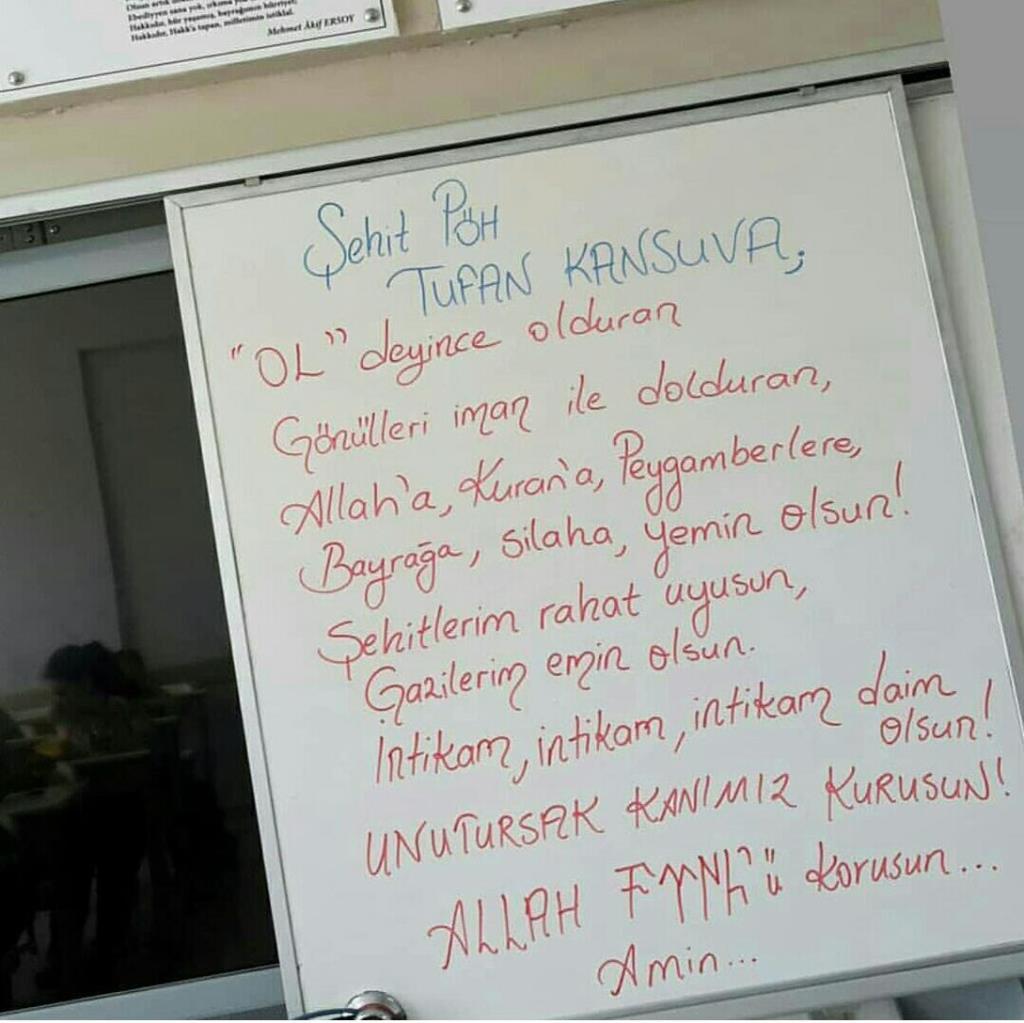 Ebediyyen sana yok, ırkıma yok
Hakkıdır, hür yaşamış, bayrağımın hürriyet;
Hakkıdır, Hakk'a tapan, milletimin istiklal.
Mehmet Âkif ERSOY
Şehit PÖH
TUFAN KANSUVA;
"OL" deyince olduran
Gönülleri iman ile dolduran,
Allah'a, Kuran'a, Peygamberlere,
Bayrağa, silaha, yemin olsun!
Şehitlerim rahat uyusun,
Gazilerim emin olsun.
İntikam, intikam, intikam daim
olsun!
UNUTURSAK KANIMIZ KURUSUN!
ALLAH 'ü korusun...
Amin...